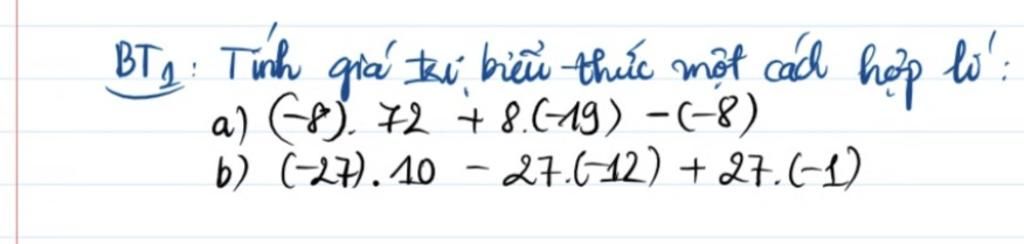 BT1: Tính giá trị biểu thức một cách hợp lí:
a) (-8). 72 + 8.(-19) - (-8)
b) (-27). 10 - 27.(-12) + 27.(-1)